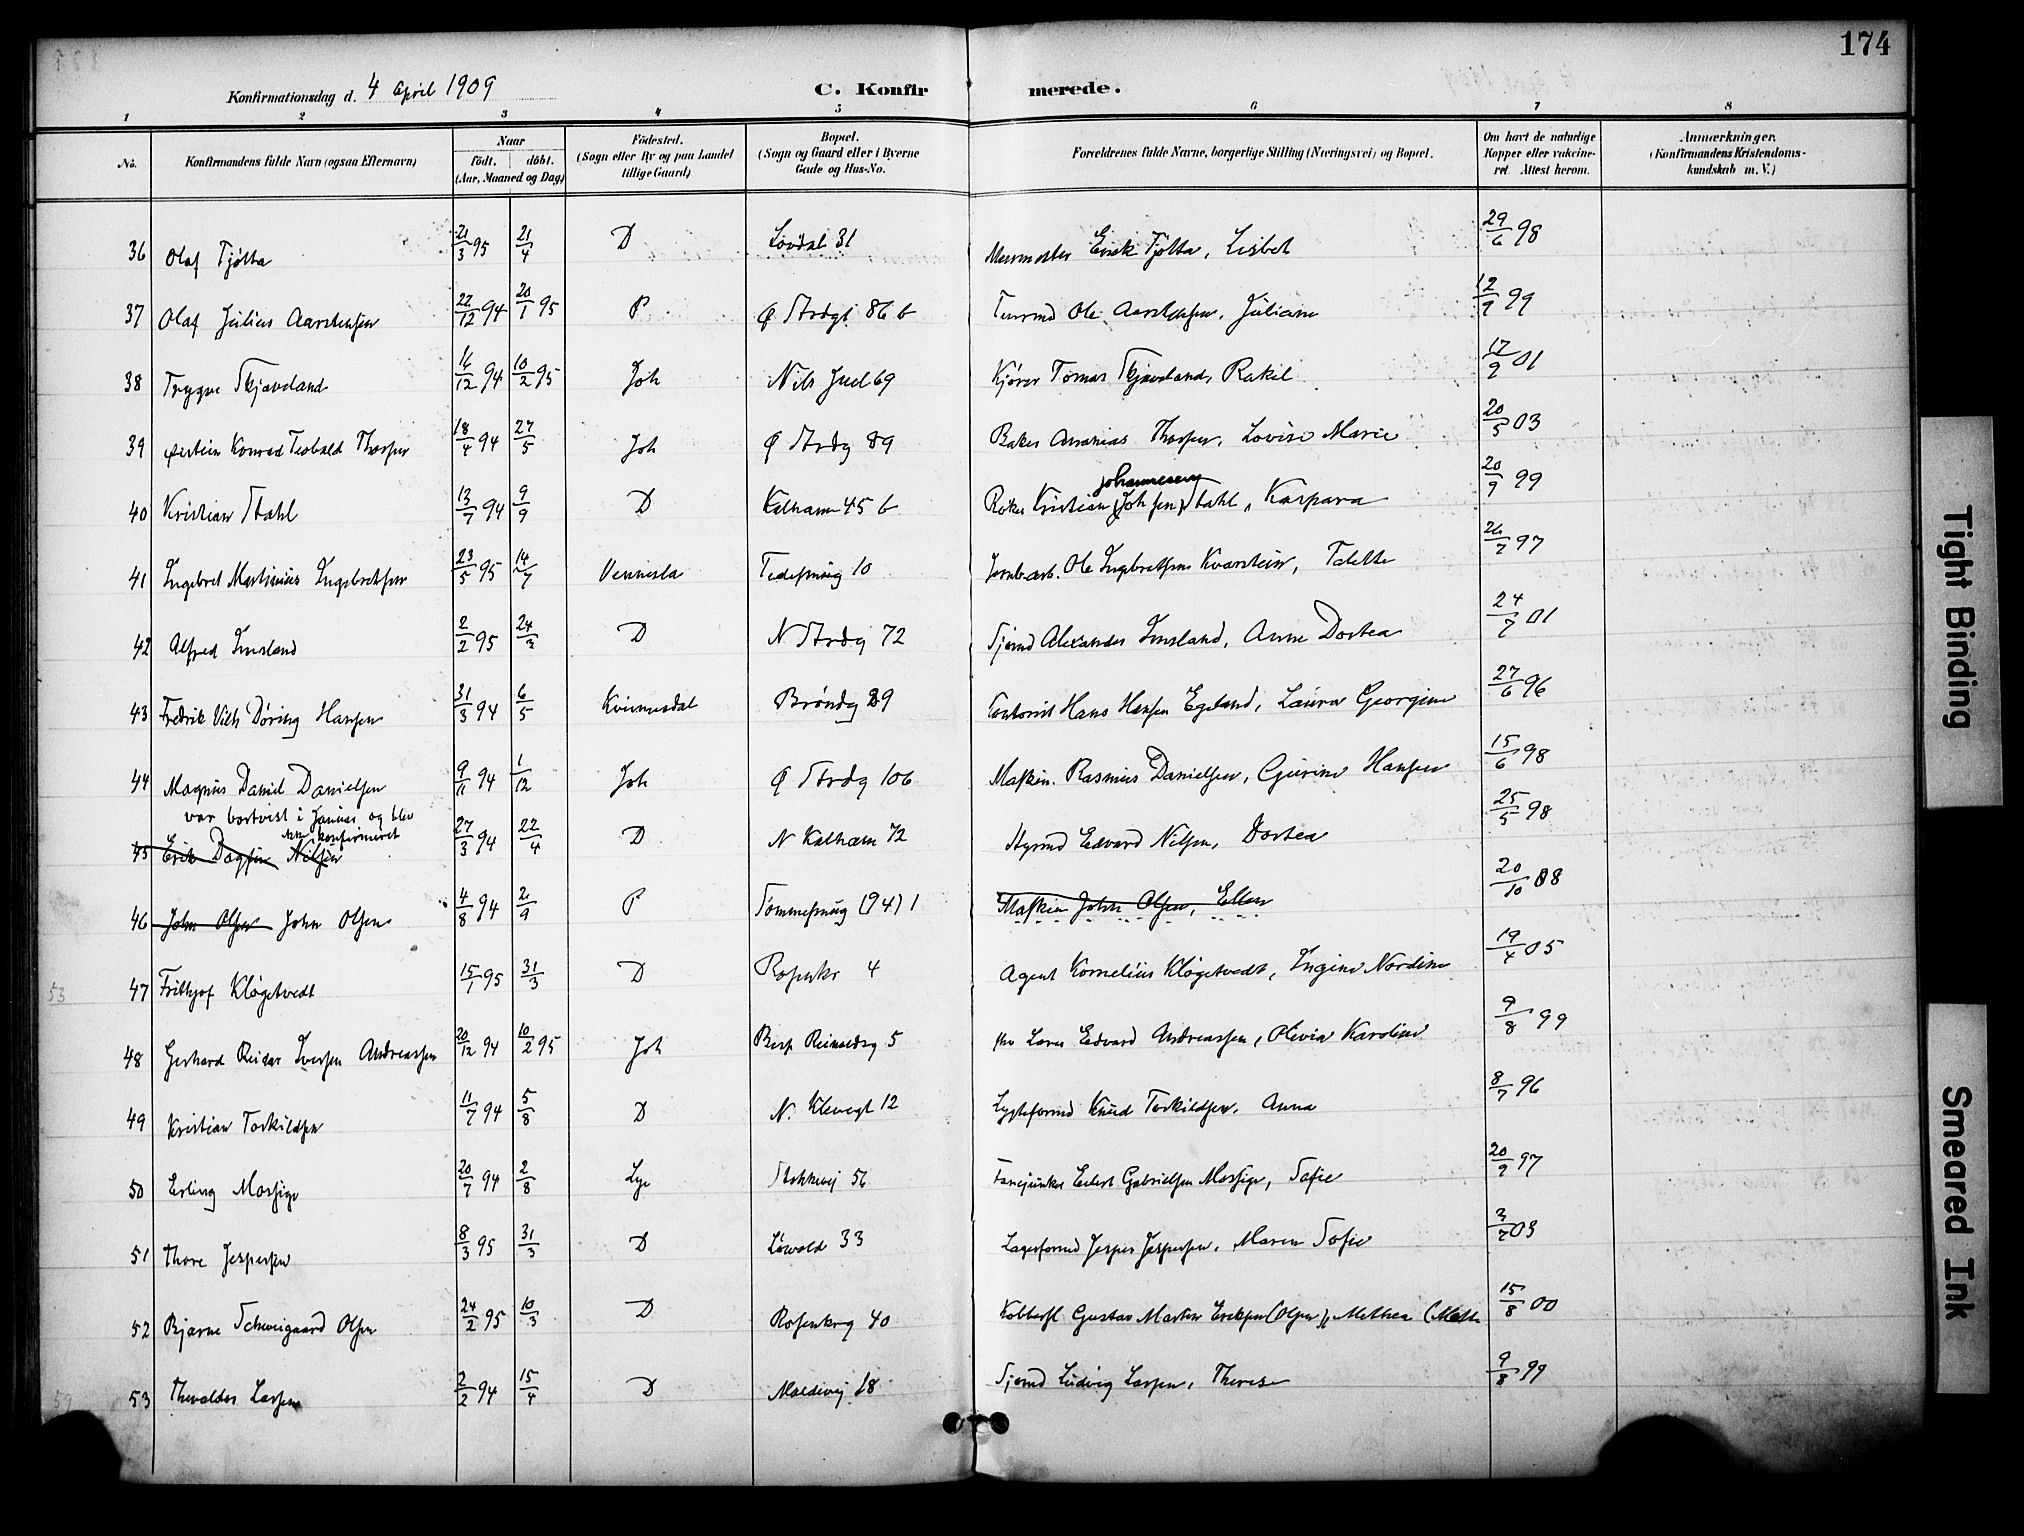 174
Konfirmationsdag d. 4 April 1909
C. Konfirmerede.
1 2 3 4 5 6 7 8
No. Konfirmandens fulde Navn (ogsaa Efternavn) Naar født. døbt. (Aar, Maaned og Dag) Fødested. (Sogn eller By og paa Landet tillige Gaard) Bopæl. (Sogn og Gaard eller i Byerne Gade og Hus-No. Forældrenes fulde Navne, borgerlige Stilling (Næringsvei) og Bopæl. Om havt de naturlige Kopper eller vaccineret Attest herom. Anmærkninger. (Konfirmandens Kristendomskundskab m. V.)
36 Olaf Tjøtta 21/3 95 21/4 D Lovdal 31 Murmester Erik Tjøtta, Lisbet 29/6 98
37 Olaf Julius Aarstensen 22/12 94 20/1 95 P Ø Strdgt 86 b Ole Aarstensen, Juliane 12/9 99
38 Trygve Skjæveland 16/12 94 10/2 95 Joh Nils Juel 69 Kjører Tomas Skjæveland, Rakel 17/9 01
39 Øistein Konrad Teobald Thorsen 18/4 94 27/5 Joh Ø Strdg 89 Baker Ananias Thorsen, Lovise Marie 20/5 03
40 Kristian Stahl 13/7 94 9/9 D Kalhamm 45 b Kristian (Johsen) Johannesen Stahl, Kaspara 20/9 99
41 Ingebret Martinius Ingebretsen 23/5 95 14/7 Vennesla 10 Jernbarb. Ole Ingebretsen Kvarstein, Talette 26/7 97
42 Alfred Imsland 2/2 95 24/3 D N Strdg 72 Sjømd Alexander Imsland, Anne Dortea 24/7 01
43 Fredrik Vilh Døring Hansen 31/3 94 6/5 Kvinnesdal Brøndg 29 Hans Hansen Egeland, Laura Georgine 27/6 96
44 Magnus Daniel Danielsen 9/11 94 1/12 Joh Ø Strdg 106 Maskin. Rasmus Danielsen, Gurine Hansen 15/6 98
var bortvist i Januar og blev
ikke konfirmeret
45 Erik Dagfin Nilsen 27/3 94 22/4 D N Kalham 72 Edvard Nilsen, Dortea 25/5 98
46 John Olsen John Olsen 4/8 94 2/9 P (94) 1 Maskin John Olsen, Ellen 20/10 08
47 Frithjof Kløgetvedt 15/1 95 31/3 D Rosenkr 4 Agent Kornelius Kløgetvedt, Ingine Nordine 19/4 05
48 Gerhard Reidar Iversen Andreassen 20/12 94 10/2 95 Joh 5 Lars Edvard Andreassen, Olevia Karoline 9/8 99
49 Kristian Torkildsen 11/7 94 5/8 D N. Klevegt 12 Lygteformd Knud Torkildsen, Anna 8/7 96
50 Erling Mossige 20/7 94 2/8 Lye Stokkavej 56 Eilert Gabrielsen Mossige, Sofie 20/9 97
51 Thore Jespersen 8/3 95 31/3 D Løvdal 33 Lagerformd Jesper Jespersen, Maren Sofie 3/7 03
52 Bjarne Schweigaard Olsen 24/2 95 10/3 D Rosenkrg 40 Gustav Martin Eriksen (Olsen), Methea 15/8 00
53 Thevaldor Larsen 2/2 94 15/4 D 18 Sjømd Ludvig Larsen, Therese 9/8 99
53
59
Tight Binding
Smeared Ink